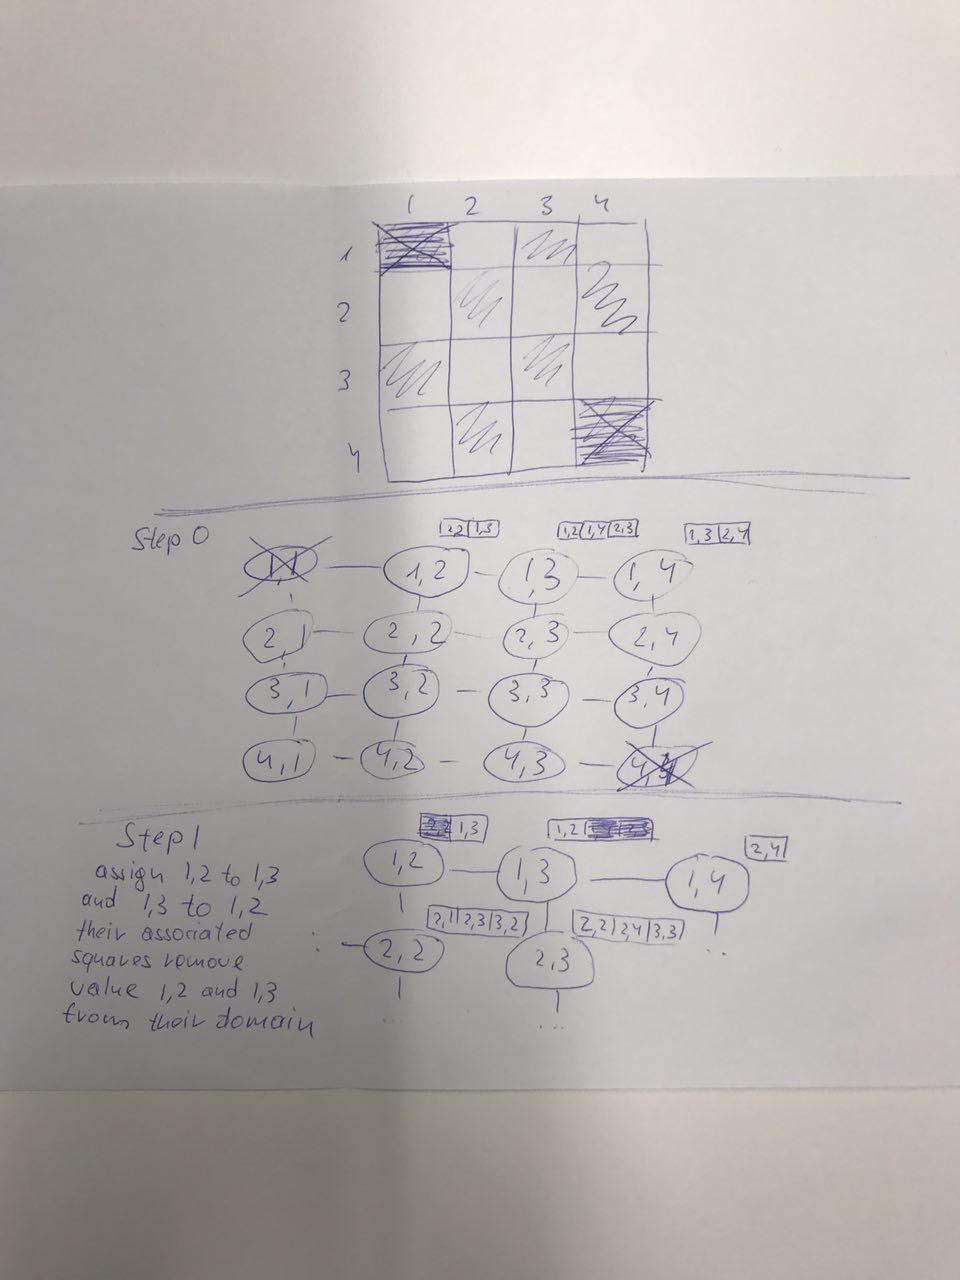 1 2 3 4
1
2
3
4
Step 0
2,2 1,3
1,2 1,4 2,3
1,3 2,4
1,1 1,2 1,3 1,4
2,1 2,2 2,3 2,4
3,1 3,2 3,3 3,4
4,1 4,2 4,3 4,4
Step 1
assign 1,2 to 1,3
and 1,3 to 1,2
their associated
squares remove
value 1,2 and 1,3
from their domain
2,2 1,3
1,2
2,4
1,2 1,3 1,4
2,1 2,3 3,2
2,2 2,4 3,3
2,2 2,3